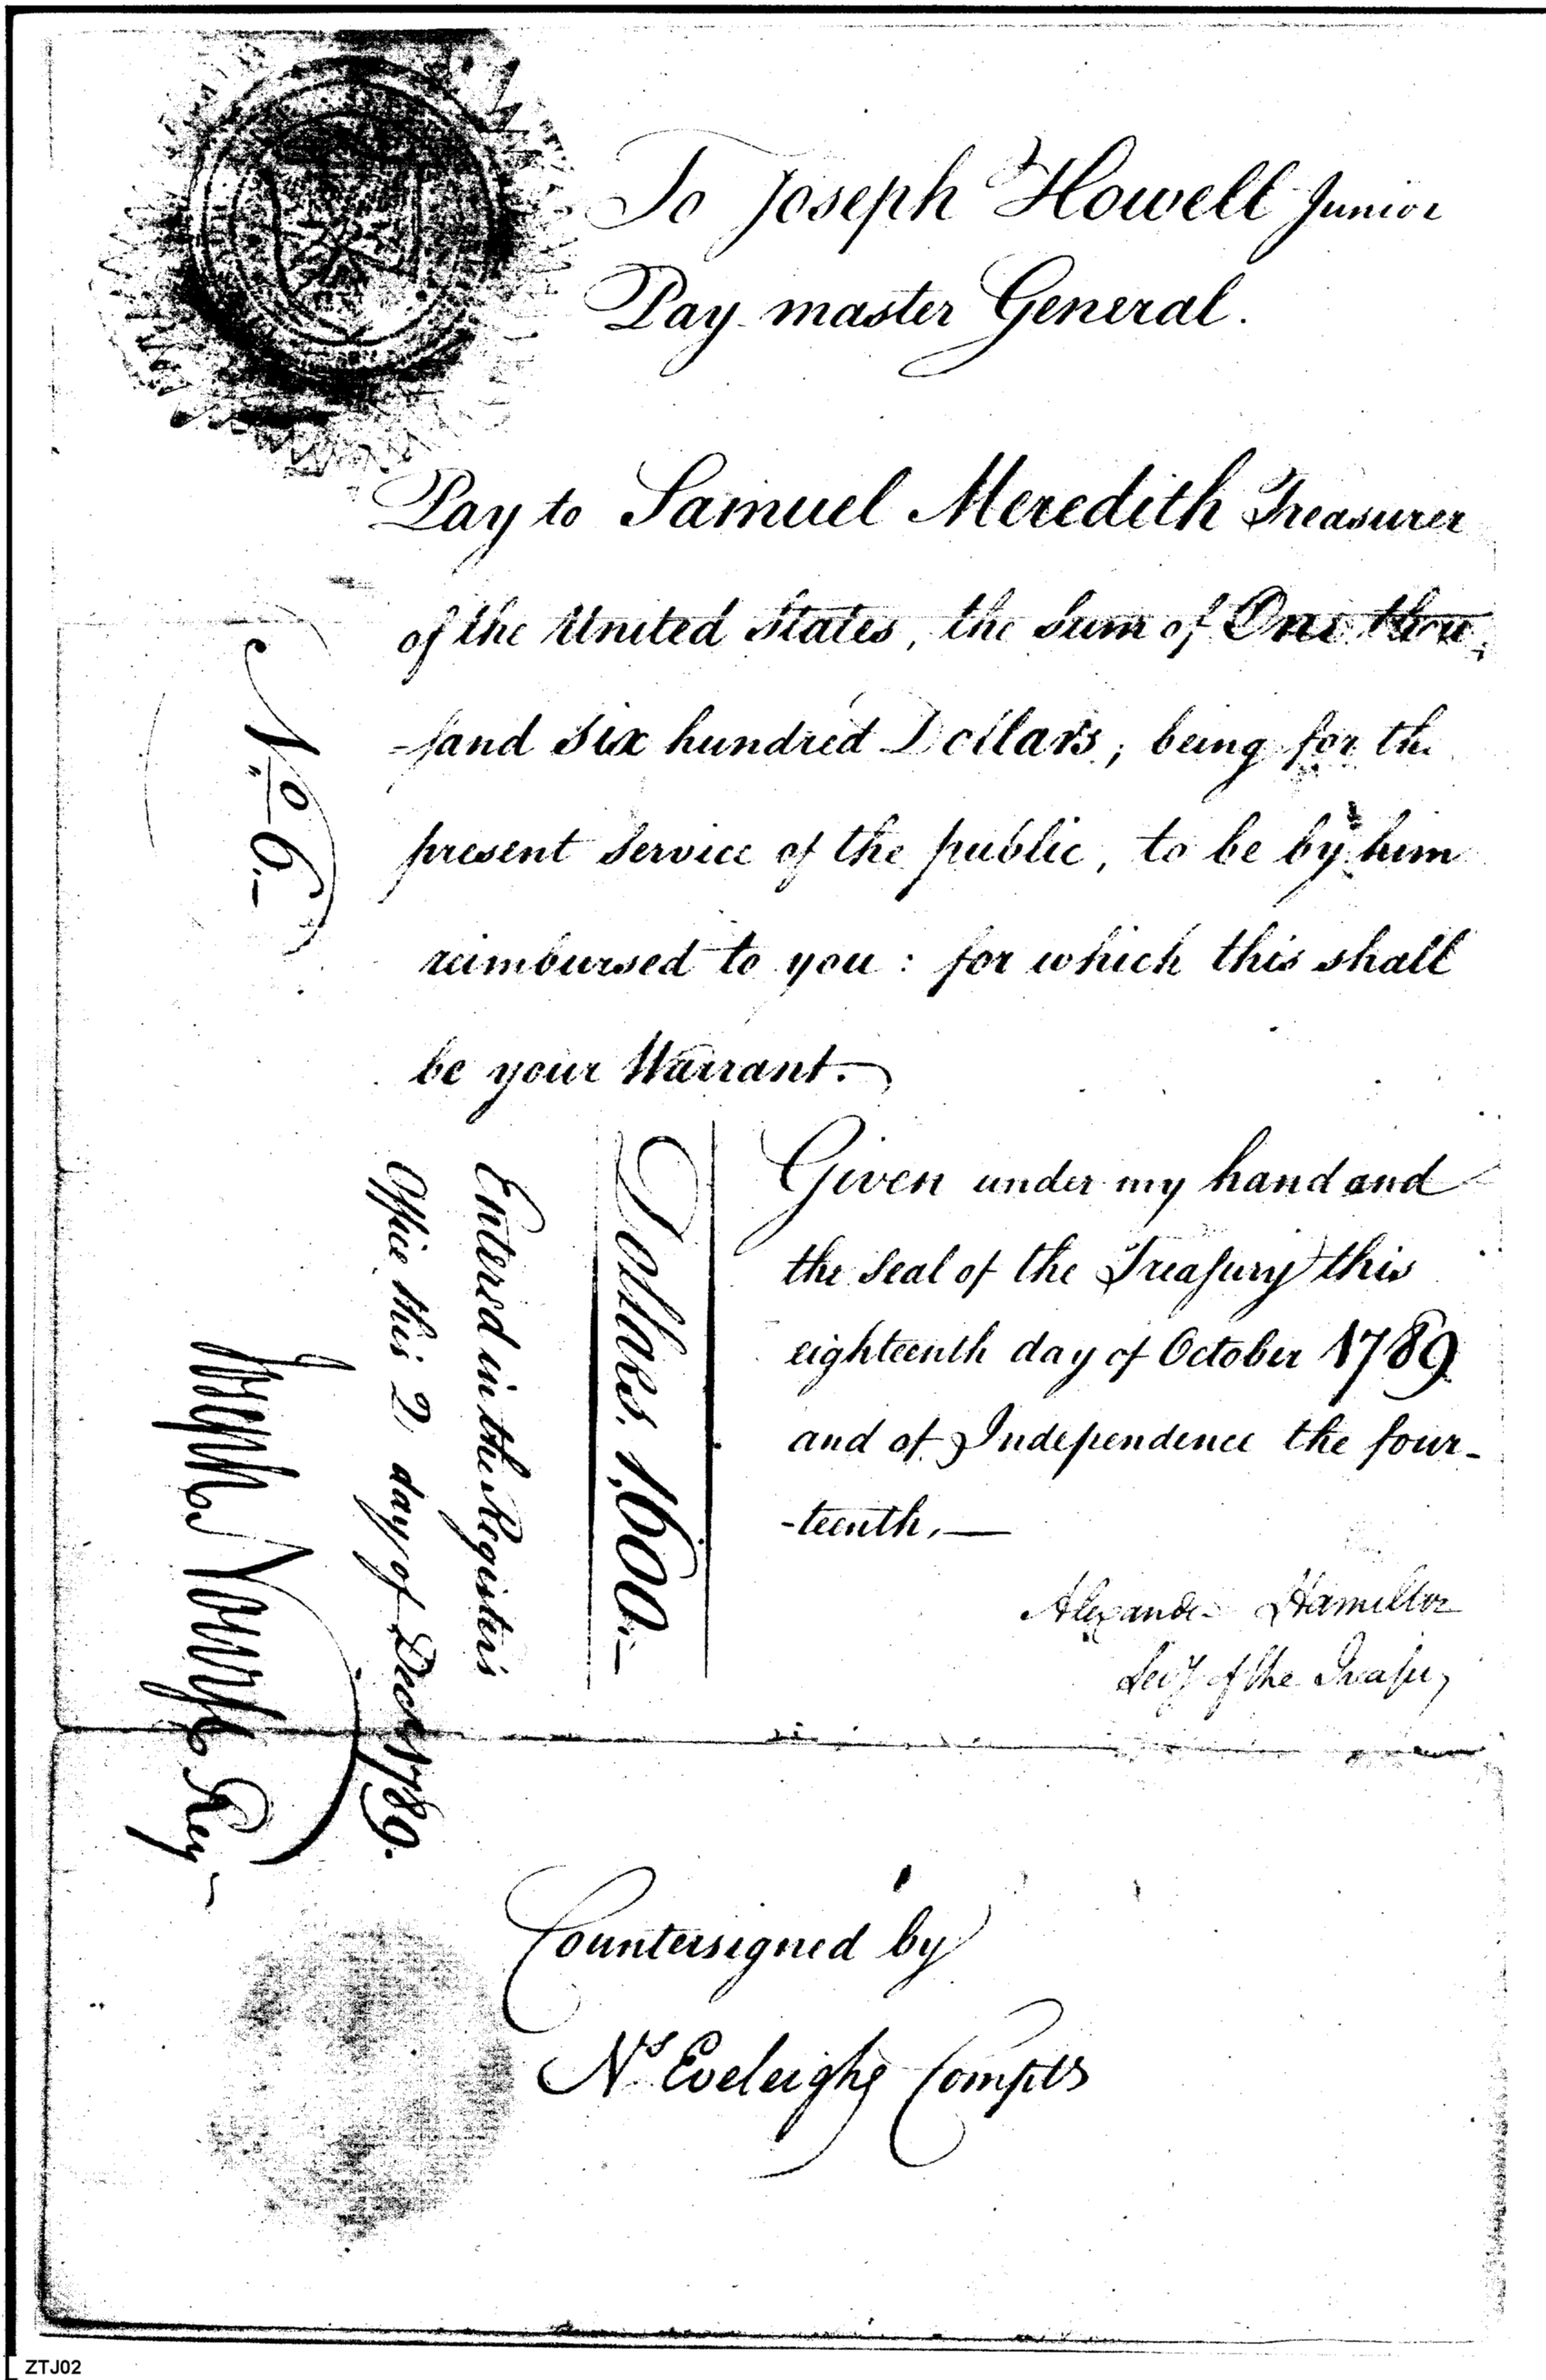 To Joseph Howell Junior
Pay master General.
Pay to Samuel Meredith Treasurer
of the United States, the Sum of One thou-
-sand Six hundred Dollars; being for the
present Service of the public, to be by him
reimbursed to you: for which this shall
be your Warrant.
No. 6.
Given under my hand and
the Seal of the Treasury this
eighteenth day of October 1789
and of Independence the four-
-teenth.
Dollars. 1,600.
Entered in the Registers
Office this 2 day of Decr. 1789.
Joseph Nourse Reg
Alexander Hamilton
Secy of the Treasury
Countersigned by
Ns Eveleigh Comptr
ZTJ02